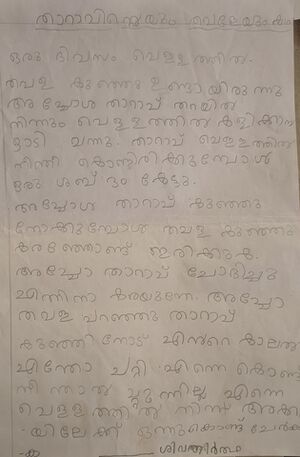 താറാവിന്റെയും തവളയുടെയും കഥ
ഒരു ദിവസം വെള്ളത്തിൽ.
തവള കുഞ്ഞു ഉണ്ടായിരുന്നു
അപ്പോൾ താറാവ് തറയിൽ
നിന്നും വെള്ളത്തിൽ കളിക്കാൻ
ഓടി വന്നു. താറാവ് വെള്ളത്തിൽ
നീന്തി കൊണ്ടിരിക്കുമ്പോൾ
ഒരു ശബ്ദം കേട്ടു.
അപ്പോൾ താറാവ് കുഞ്ഞു
നോക്കുമ്പോൾ തവള കുഞ്ഞു
കരഞ്ഞോണ്ട് ഇരിക്കുന്നു.
അപ്പോ താറാവ് ചോദിച്ചു
എന്തിനാ കരയുന്നേ. അപ്പോ
തവള പറഞ്ഞു താറാവ്
കുഞ്ഞിനോട് എൻറെ കാലനു
എന്തോ പറ്റി എന്നെ കൊണ്ട്
നീന്താൻ പറ്റുന്നില്ല എന്നെ
വെള്ളത്തിൽ നിന്ന് അരിക
യിലേക്ക് ഒന്നുകൊണ്ട് ചേർക്ക
ശിവതീർത്ഥ